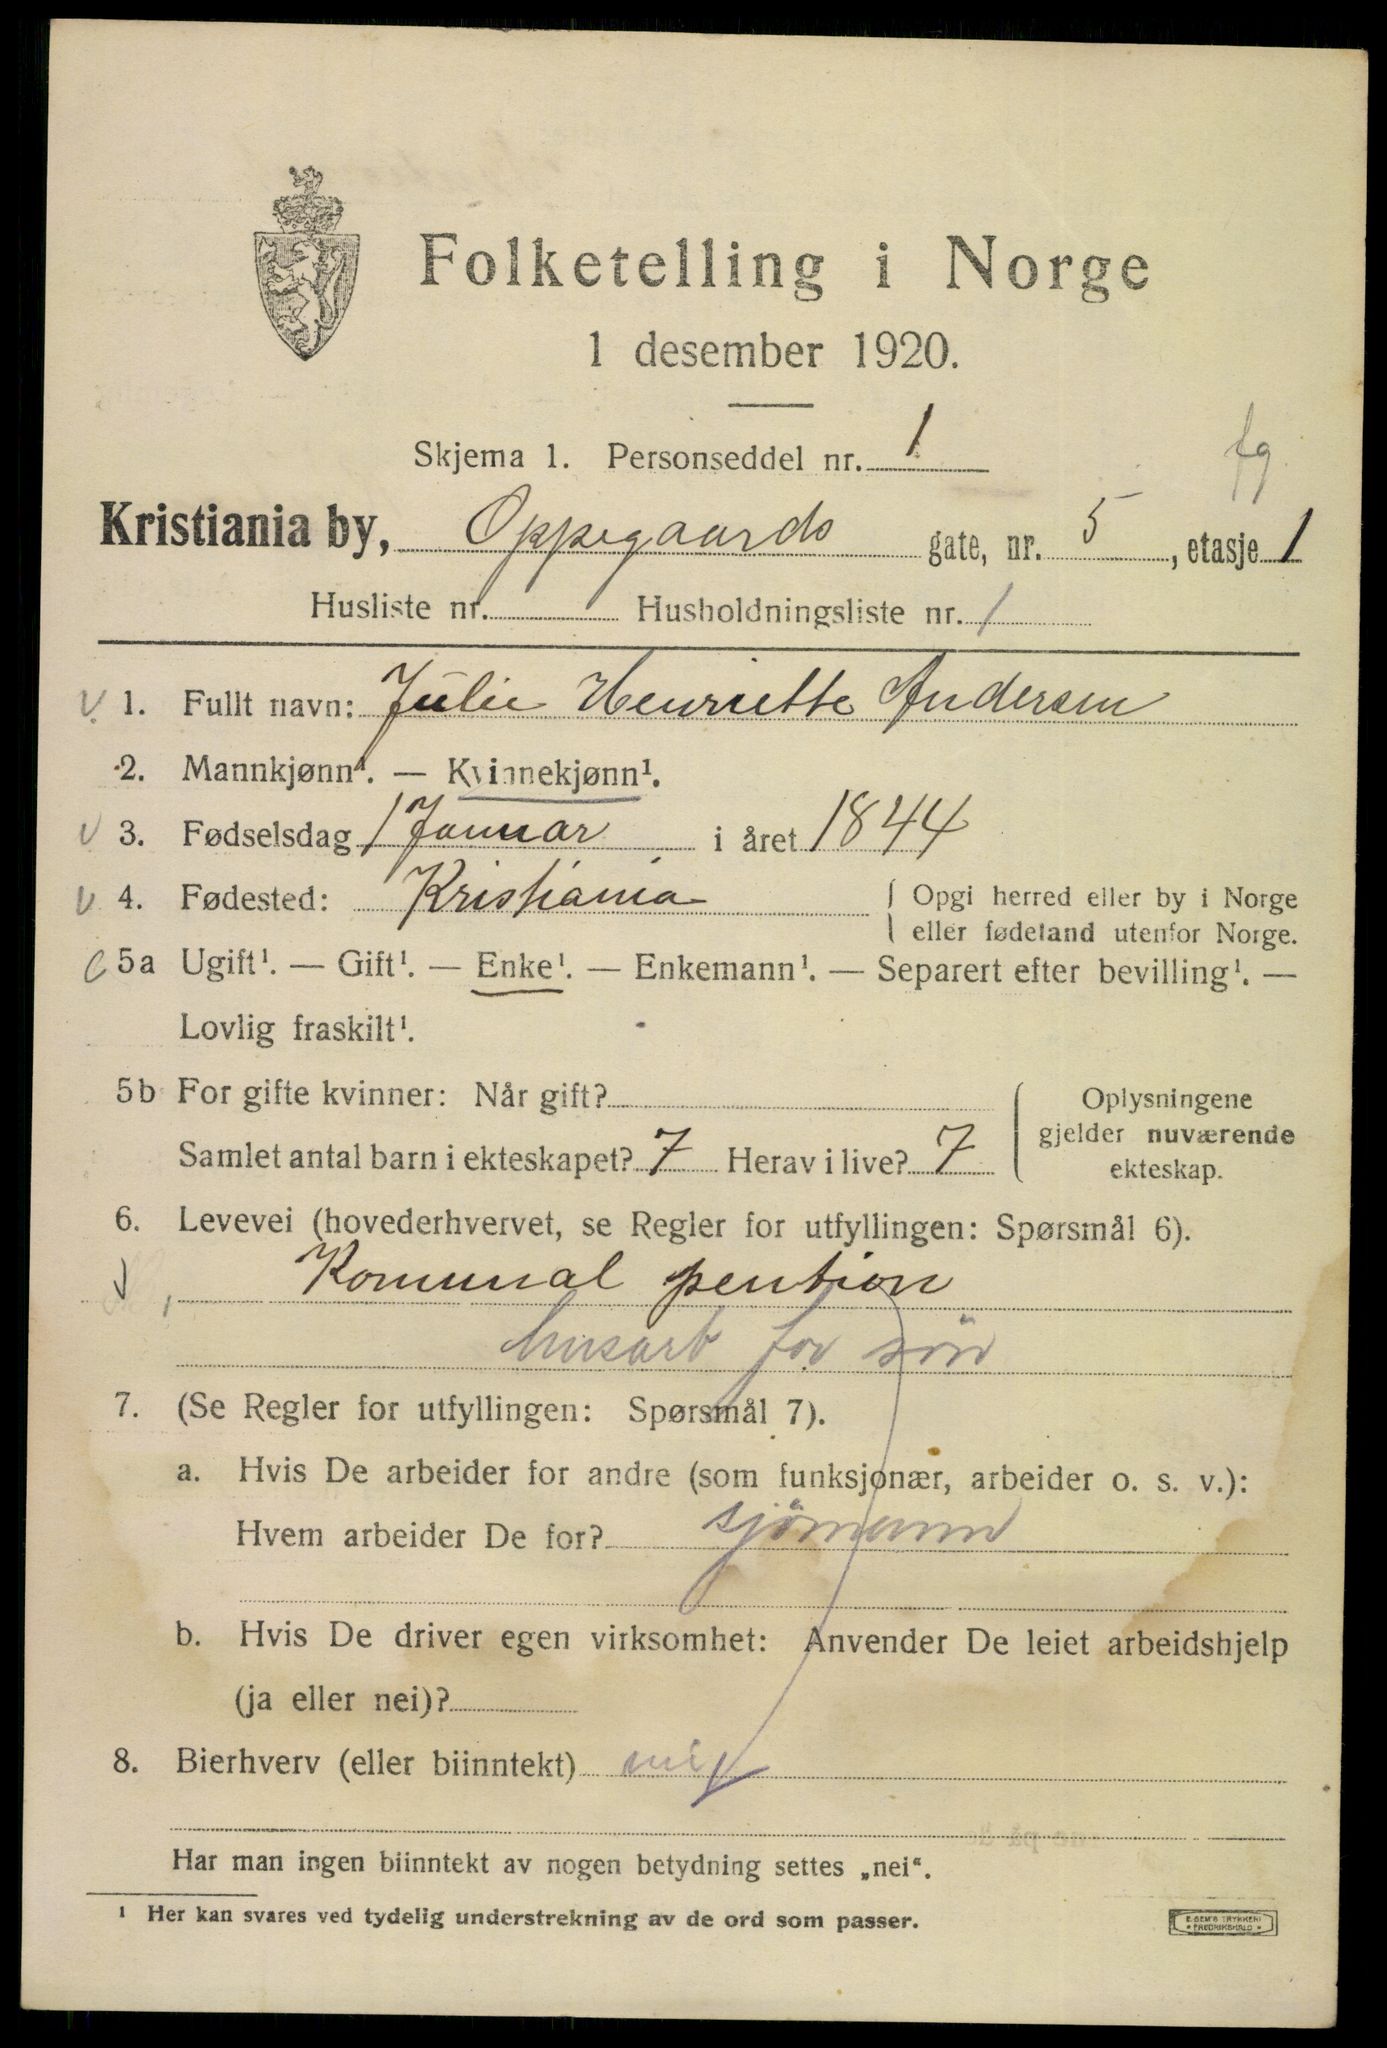 Folketelling i Norge
1 desember 1920.
Skjema 1. Personseddel nr. 1
fg
Kristiania by, Oppegaards gate, nr. 5, etasje 1
Husliste nr. Husholdningsliste nr. 1
1. Fullt navn: Julie Henriette Andersen
2. Mannkjønn¹. — Kvinnekjønn¹.
3. Fødselsdag 1 Januar i året 1844
4. Fødested: Kristiania { Opgi herred eller by i Norge
eller fødeland utenfor Norge.
5a Ugift¹. — Gift¹. — Enke¹. — Enkemann¹. — Separert efter bevilling¹. —
Lovlig fraskilt¹.
5b For gifte kvinner: Når gift?
Samlet antal barn i ekteskapet? 7 Herav i live? 7
Oplysningene
gjelder nuværende
ekteskap.
6. Levevei (hovederhvervet, se Regler for utfyllingen: Spørsmål 6).
Komunal pention
husarb for sön
7. (Se Regler for utfyllingen: Spørsmål 7).
a. Hvis De arbeider for andre (som funksjonær, arbeider o. s. v.):
Hvem arbeider De for? sjömann
b. Hvis De driver egen virksomhet: Anvender De leiet arbeidshjelp
(ja eller nei)?
8. Bierhverv (eller biinntekt) nei
Har man ingen biinntekt av nogen betydning settes „nei“.
¹ Her kan svares ved tydelig understrekning av de ord som passer.
E. SEM'S TRYKKERI
FREDRIKSHALD